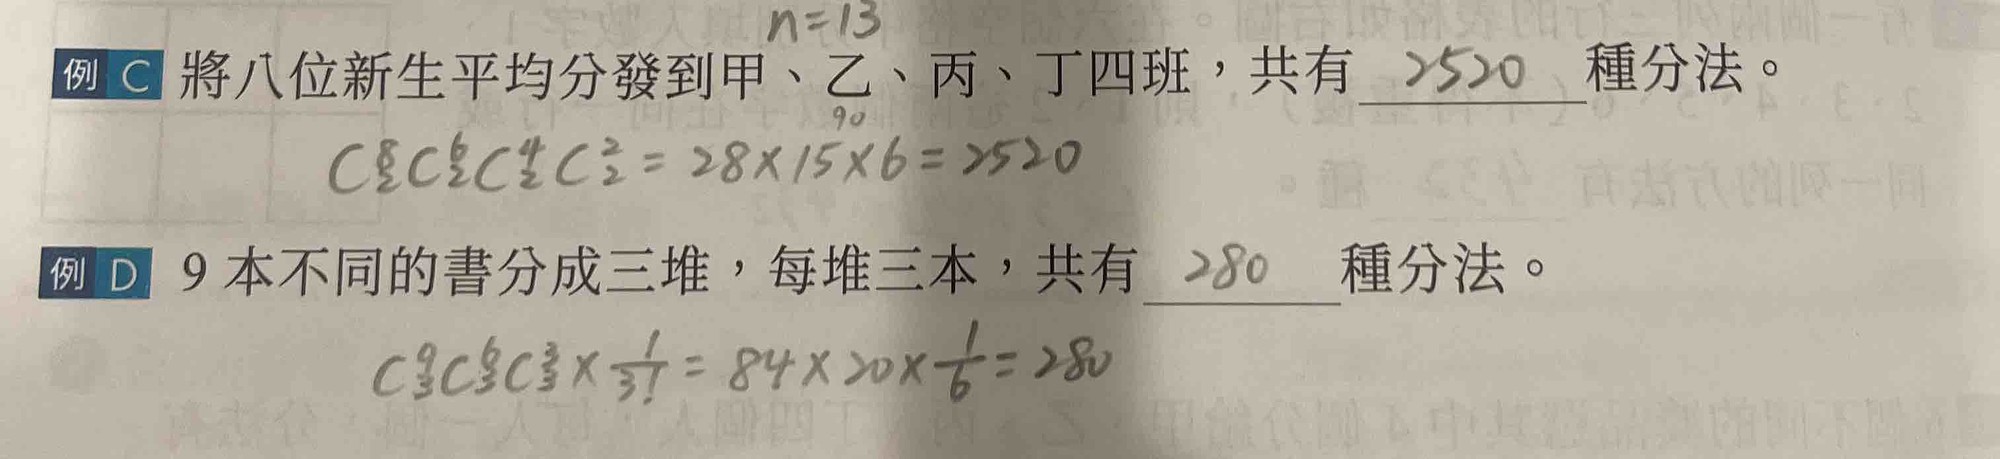 n=13
例 C 將八位新生平均分發到甲、乙、丙、丁四班，共有 2520 種分法。
90
C⁸₂C⁶₂C⁴₂C²₂ = 28×15×6 = 2520
例 D 9 本不同的書分成三堆，每堆三本，共有 280 種分法。
C⁹₃C⁶₃C³₃ × 1/3! = 84×20×1/6 = 280